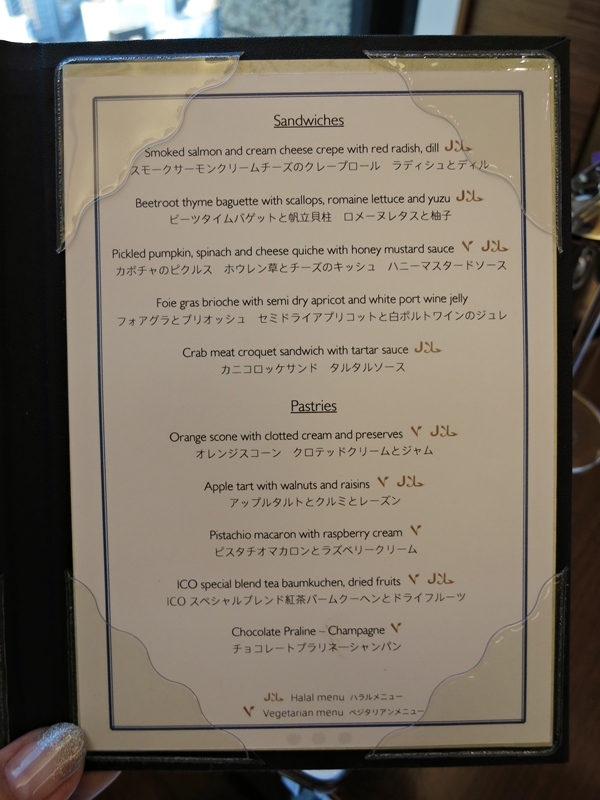 Sandwiches
Smoked salmon and cream cheese crepe with red radish, dill حلال
スモークサーモンクリームチーズのクレープロール ラディシュとディル
Beetroot thyme baguette with scallops, romaine lettuce and yuzu حلال
ビーツタイムバゲットと帆立貝柱 ロメーヌレタスと柚子
Pickled pumpkin, spinach and cheese quiche with honey mustard sauce V حلال
カボチャのピクルス ホウレン草とチーズのキッシュ ハニーマスタードソース
Foie gras brioche with semi dry apricot and white port wine jelly
フォアグラとブリオッシュ セミドライアプリコットと白ポルトワインのジュレ
Crab meat croquet sandwich with tartar sauce حلال
カニコロッケサンド タルタルソース
Pastries
Orange scone with clotted cream and preserves V حلال
オレンジスコーン クロテッドクリームとジャム
Apple tart with walnuts and raisins V حلال
アップルタルトとクルミとレーズン
Pistachio macaron with raspberry cream V
ピスタチオマカロンとラズベリークリーム
ICO special blend tea baumkuchen, dried fruits V حلال
ICO スペシャルブレンド紅茶バームクーヘンとドライフルーツ
Chocolate Praline – Champagne V
チョコレートプラリネーシャンパン
حلال Halal menu ハラルメニュー
V Vegetarian menu ベジタリアンメニュー